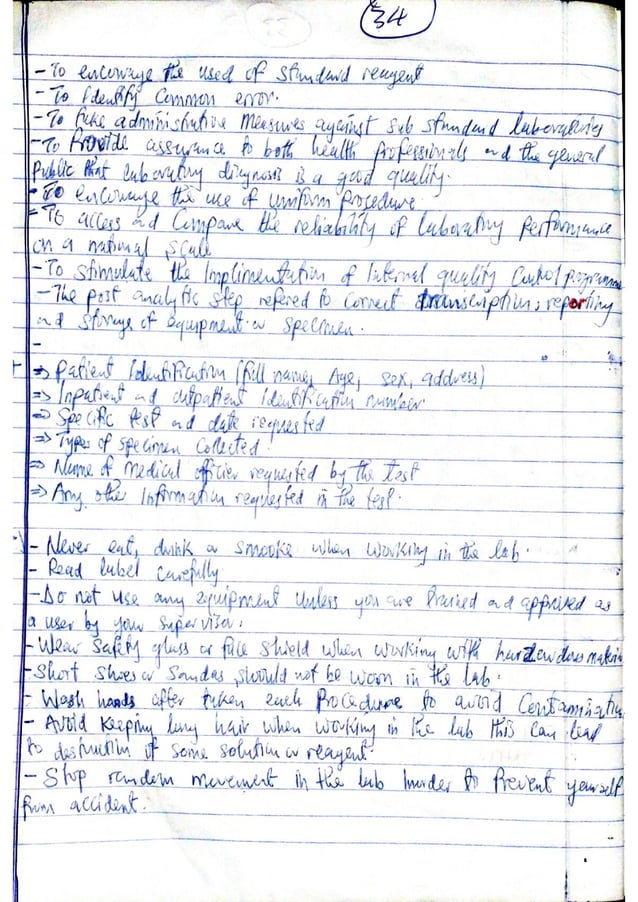 34
- To encourage the used of standard reagent
- To Identify Common error.
- To take administrative measures against sub standard laboratories
- To Provide assurance to both health professionals and the general
Public that laboratory diagnosis is a good quality.
- To encourage the use of uniform procedure
- To access and Compare the reliability of laboratory Performance
on a national scale
- To stimulate the Implimentation of Internal quality Control programme
- The post analytic step refered to correct transcription, reporting
and storage of equipment or specimen.
-
⇒ Patient Identification (full name, Age, sex, address)
⇒ Inpatient and outpatient Identification number
⇒ Specific test and date requested
⇒ Types of specimen collected.
⇒ Name of medical officer requested by the test
⇒ Any other Information requested in the test.
- Never eat, drink or smooke when working in the lab.
- Read label carefully
- Do not use any equipment unless you are trained and approved as
a user by your supervisor.
- Wear Safety glass or face shield when working with material
- Short shoes or Sandas should not be worn in the lab.
- Wash hands after taken each Procedure to avoid Contamination
- Avoid keeping long hair when working in the lab this can lead
to destruction of some solution or reagent.
- Stop random movement in the lab inorder to Prevent yourself
from accident.